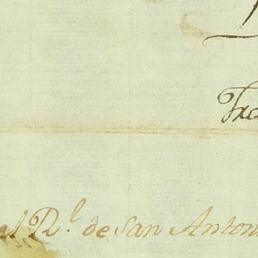 Fra
el R.l de San Anton